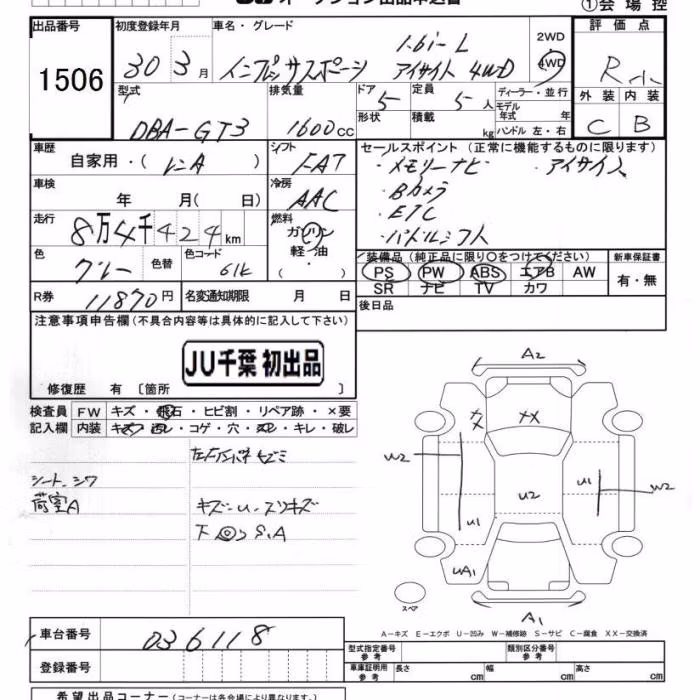 JU オークション出品申込書
①会場控
出品番号 1506
初度登録年月 30 3月
車名・グレード 1.6i-L
インプレッサスポーツ アイサイト 4WD
2WD
4WD
評価点 R
外装 内装
C B
型式 DBA-GT3
排気量 1600cc
ドア 5
定員 5人
形状
積載 kg
ディーラー・並行
モデル年式 年
ハンドル 左・右
車歴 自家用・(レンA)
シフト FAT
車検 年 月( 日)
冷房 AAC
走行 8万4千424km
燃料 ガソリン・軽油( ・ )
色 グレー 色替
色コード 61K
R券 11870円
名変通知期限 月 日
セールスポイント (正常に機能するものに限ります)
・メモリーナビ ・アイサイト
・Bカメラ
・ETC
・パドルシフト
装備品 (純正品に限り○をつけてください)
PS PW ABS エアB AW
SR ナビ TV カワ
新車保証書
有・無
後日品
注意事項申告欄 (不具合内容等は具体的に記入して下さい)
JU千葉 初出品
修復歴 有 〔箇所 〕
検査員記入欄
FW キズ・飛石・ヒビ割・リペア跡・×要
内装 キズ・コゲ・穴・キレ・破レ
シート、シワ
荷室A
キズ・U・スリキズ
下 S.A
A2
XX
W2
U1
U2
U1
W2
UA1
A1
スペア
A-キズ E-エクボ U-凹み W-補修跡 S-サビ C-腐食 XX-交換済
車台番号 036118
登録番号
型式指定番号 参考
類別区分番号 参考
車庫証明用 参考
長さ cm 幅 cm 高さ cm
希望出品コーナー (コーナーは各会場により異なります。)